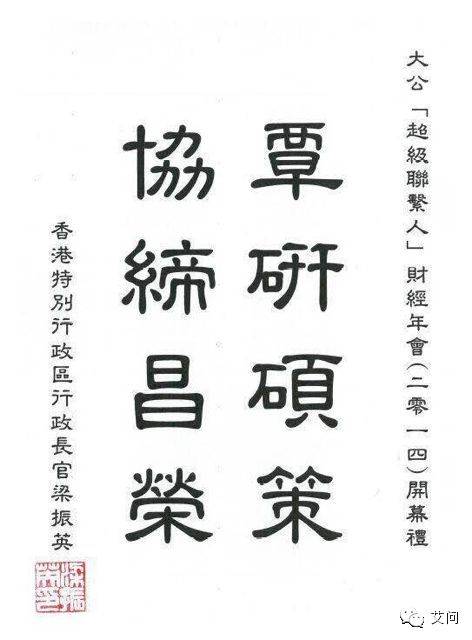 大公「超級聯繫人」財經年會(二零一四)開幕禮
覃研碩策
協締昌榮
香港特別行政區行政長官梁振英
艾问